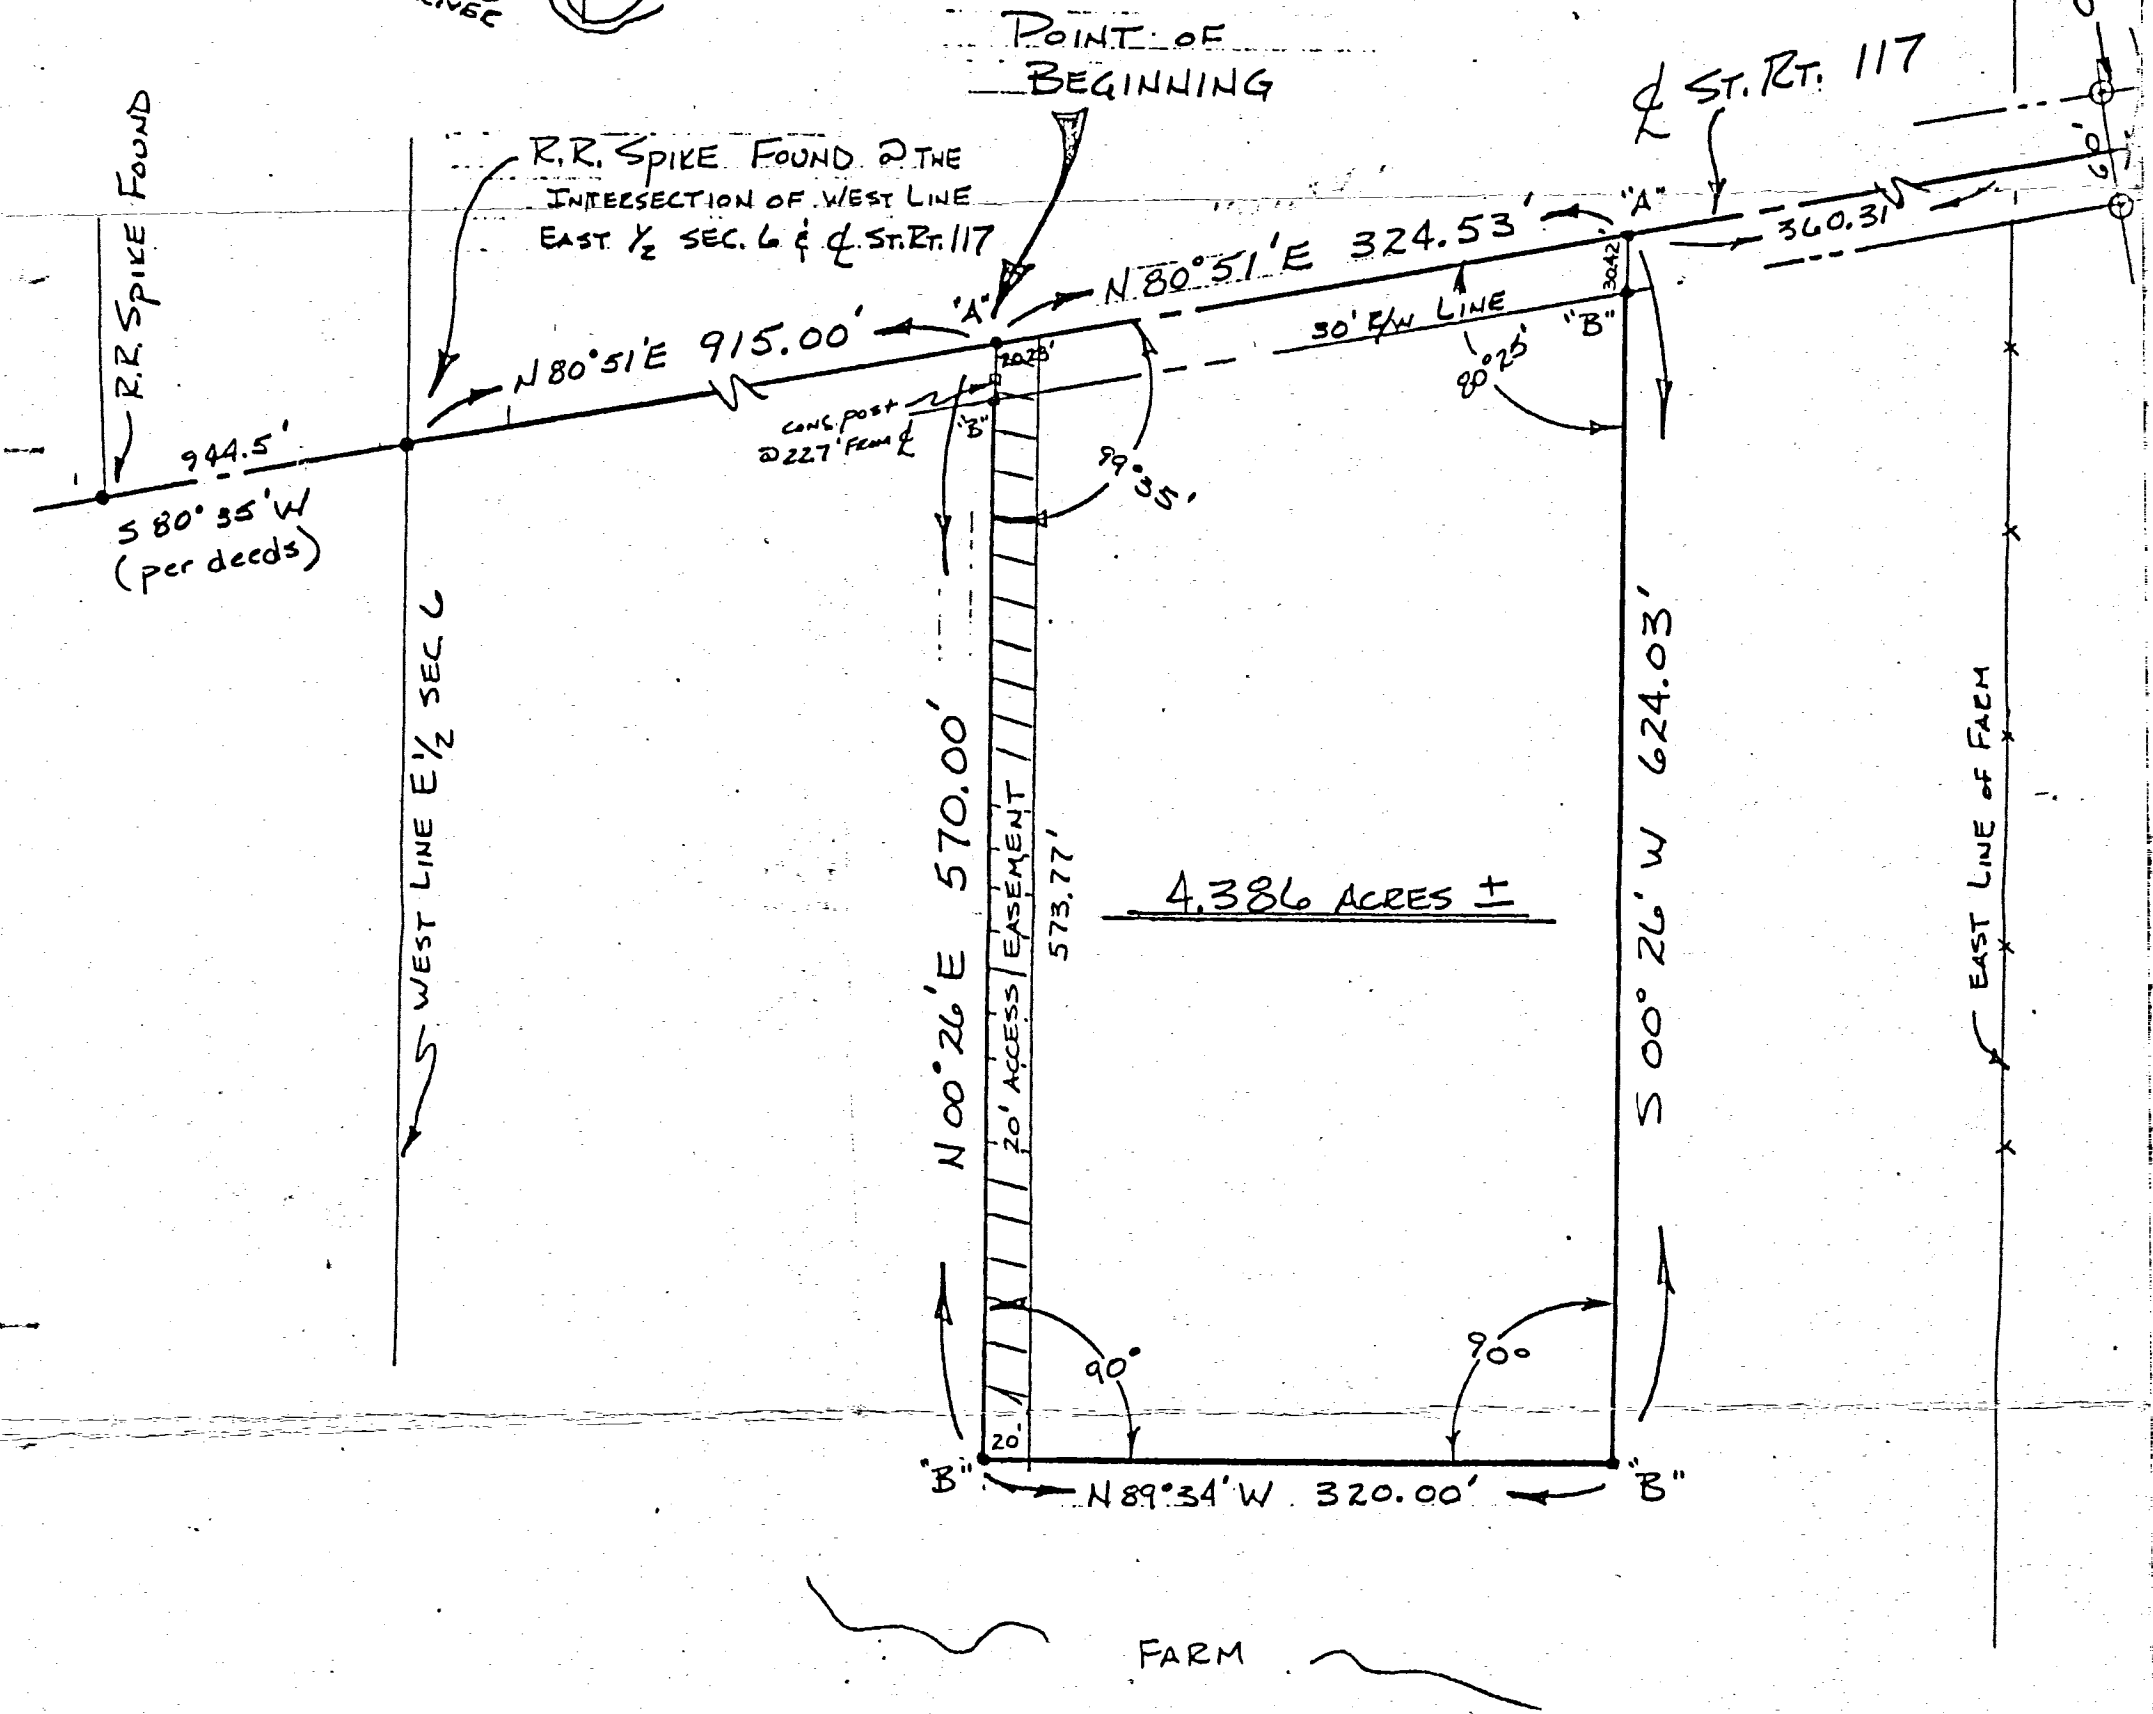 POINT OF
BEGINNING
℄ ST. RT. 117
R.R. SPIKE FOUND
R.R. SPIKE FOUND @ THE
INTERSECTION OF WEST LINE
EAST ½ SEC. 6 & ℄ ST.RT. 117
"A"
N 80°51'E 324.53'
"A"
360.31'
60'
30.42'
30' R/W LINE
"B"
80°25'
N 80°51'E 915.00'
20.28'
CONC. POST
@ 22.7' FROM ℄
"B"
99°35'
944.5'
S 80°35'W
(per deeds)
WEST LINE E ½ SEC 6
N 00°26'E 570.00'
20' ACCESS EASEMENT
573.77'
4.386 ACRES ±
S 00°26'W 624.03'
EAST LINE OF FARM
90°
90°
20'
"B"
N 89°34'W 320.00'
"B"
FARM